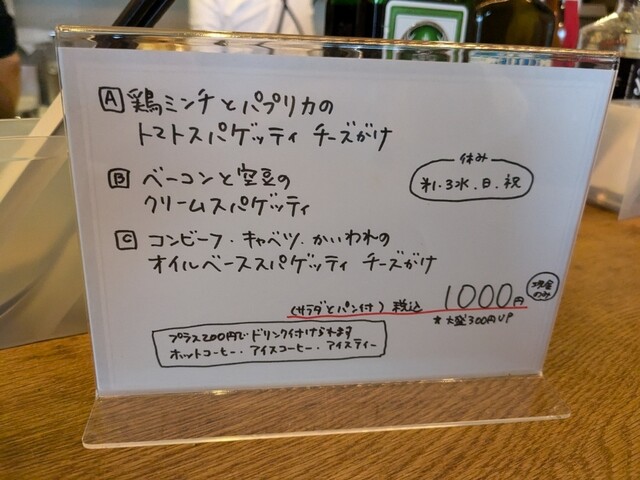 A 鶏ミンチとパプリカの
トマトスパゲッティ チーズがけ
B ベーコンと空豆の
クリームスパゲッティ
休み
第1.3水.日.祝
C コンビーフ・キャベツ・かいわれの
オイルベーススパゲッティ チーズがけ
(サラダとパン付) 税込 1000円
現金のみ
*大盛300円UP
プラス200円でドリンク付けられます
ホットコーヒー・アイスコーヒー・アイスティー